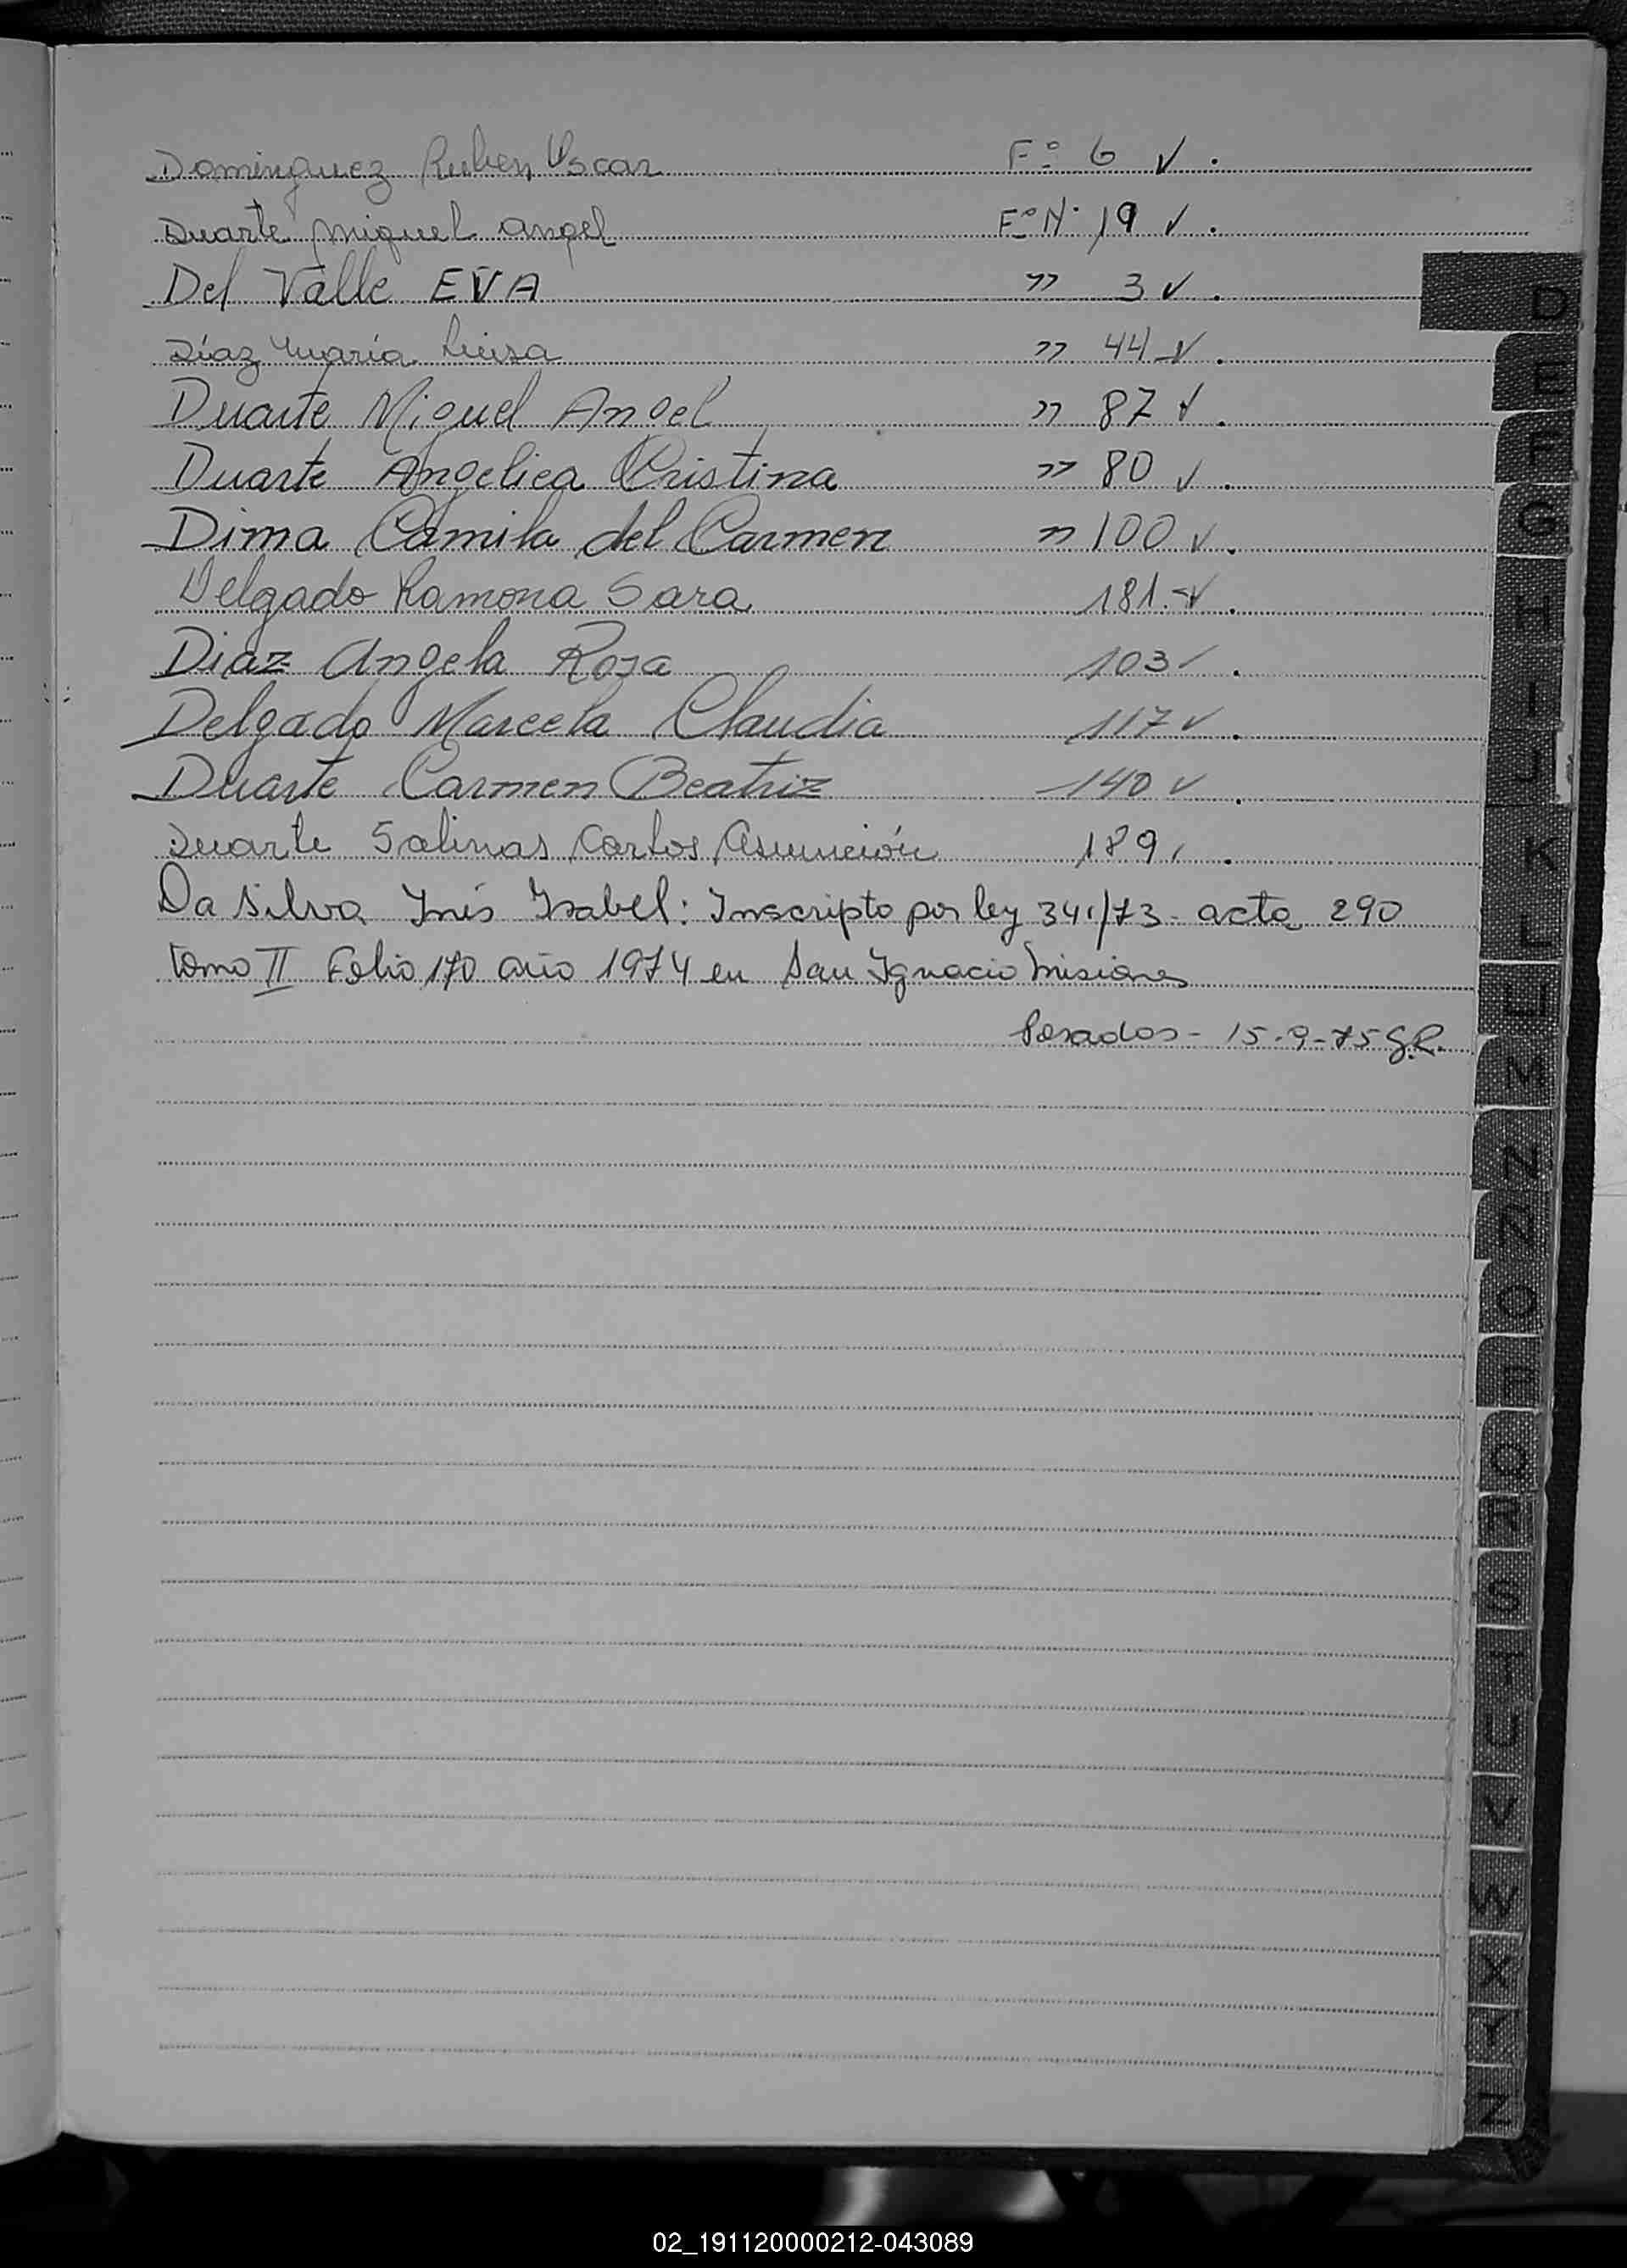 Dominguez Ruben Oscar Fº 6 √ .
Duarte Miguel angel Fº Nº 19 √ .
Del Valle EVA " 3 √ .
Díaz María Luisa " 44 √ .
Duarte Miguel Angel " 87 √ .
Duarte Angelica Cristina " 80 √ .
Dima Camila del Carmen " 100 √ .
Delgado Ramona Sara 181.- √ .
Diaz Angela Rosa 103 √ .
Delgado Marcela Claudia 117 √ .
Duarte Carmen Beatriz 140 √ .
Duarte Salinas Carlos Asunción 189 , .
Da Silva Inés Isabel: Inscripto por ley 341/73 - acta 290
tomo II Folio 170 año 1974 en San Ignacio Misiones
Posadas - 15-9-75 G.R.
D
E
F
G
H
I
J
K
L
LL
M
N
Ñ
O
P
Q
R
S
T
U
V
W
X
Y
Z
02_191120000212-043089